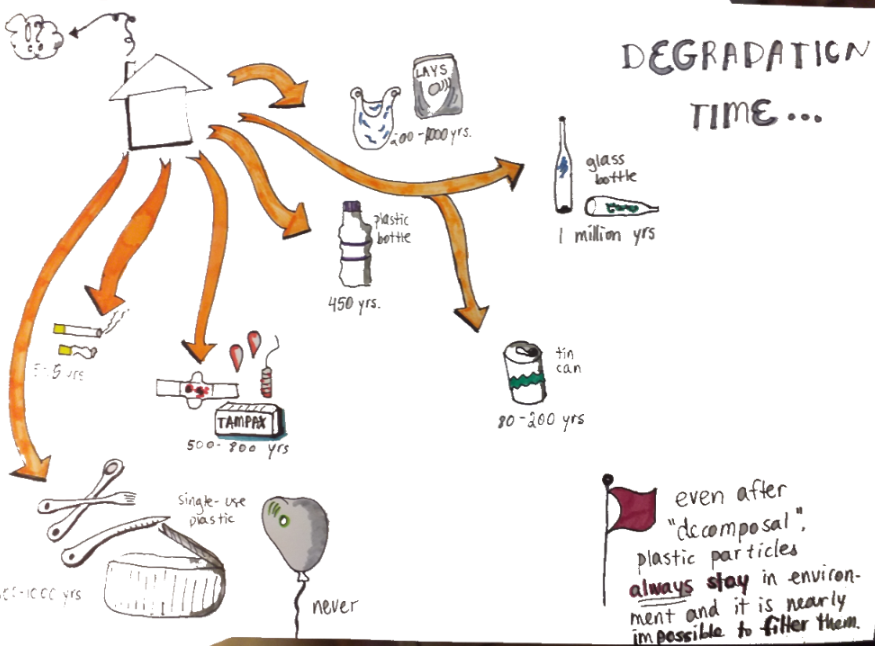 !?
DEGRADATION
TIME...
LAYS
200-1000 yrs.
glass
bottle
1 million yrs
plastic
bottle
450 yrs.
tin
can
80-200 yrs
5 yrs
TAMPAX
500-800 yrs
single-use
plastic
1000 yrs
never
even after
"decomposal",
plastic particles
always stay in environ-
ment and it is nearly
impossible to filter them.